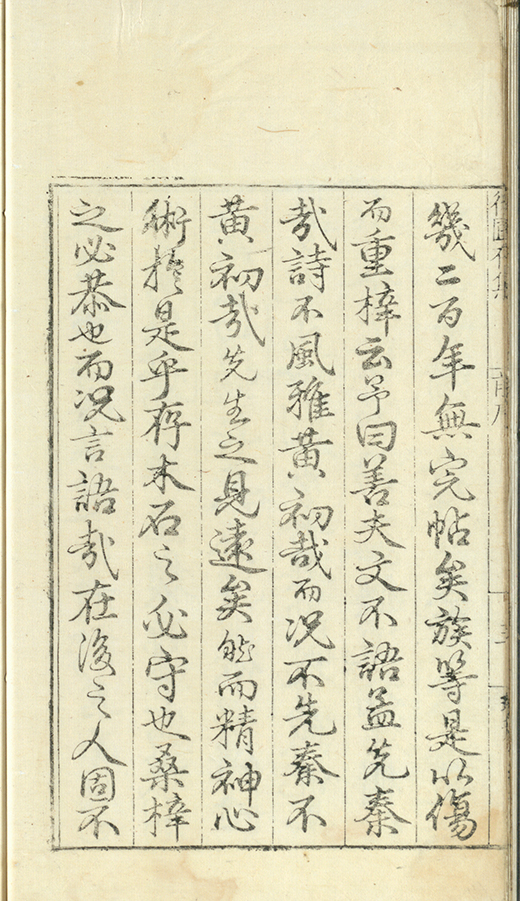 幾二百年無完帖矣族等是以傷
而重梓云予曰善夫文不語孟先秦
哉詩不風雅黄初哉而况不先秦不
黄初哉先生之見遠矣然而精神心
術於是乎存木石之必守也桑梓
之必恭也而况言語哉在後之人固不